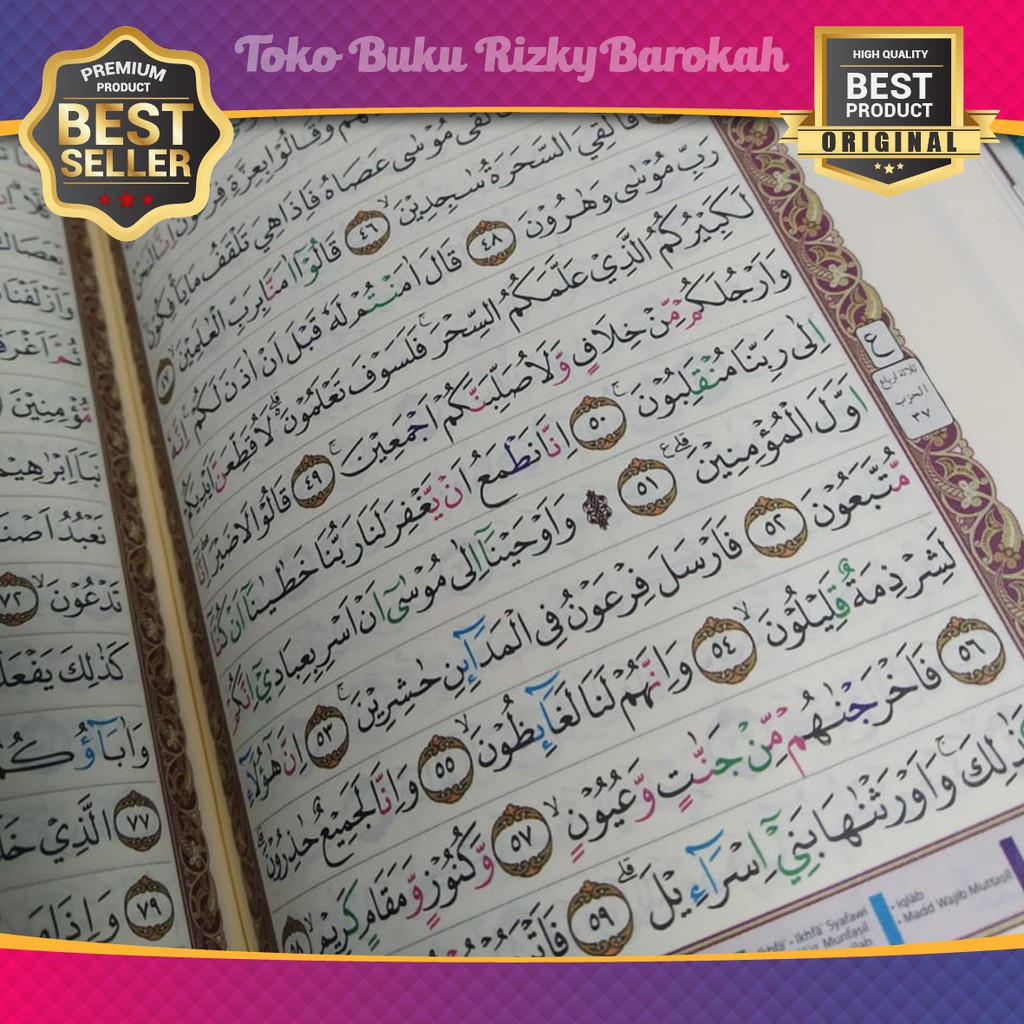 Toko Buku RizkyBarokah
PREMIUM
PRODUCT
BEST
SELLER
HIGH QUALITY
BEST
PRODUCT
ORIGINAL
وَقَالُوْا بِعِزَّةِ فِرْعَوْنَ اِنَّا
مُوْسٰى عَصَاهُ فَاِذَا هِيَ تَلْقَفُ مَا يَأْفِكُوْنَ
فَاُلْقِيَ السَّحَرَةُ سٰجِدِيْنَ ۙ ٤٦ قَالُوْٓا اٰمَنَّا بِرَبِّ الْعٰلَمِيْنَ ۙ ٤٧
رَبِّ مُوْسٰى وَهٰرُوْنَ ٤٨ قَالَ اٰمَنْتُمْ لَهٗ قَبْلَ اَنْ اٰذَنَ لَكُمْ ۚ اِنَّهٗ
لَكَبِيْرُكُمُ الَّذِيْ عَلَّمَكُمُ السِّحْرَۚ فَلَسَوْفَ تَعْلَمُوْنَ ەۗ لَاُقَطِّعَنَّ اَيْدِيَكُمْ
وَاَرْجُلَكُمْ مِّنْ خِلَافٍ وَّلَاُصَلِّبَنَّكُمْ اَجْمَعِيْنَ ۚ ٤٩ قَالُوْا لَا ضَيْرَ ۖ اِنَّآ
اِلٰى رَبِّنَا مُنْقَلِبُوْنَ ۚ ٥٠ اِنَّا نَطْمَعُ اَنْ يَّغْفِرَ لَنَا رَبُّنَا خَطٰيٰنَآ اَنْ كُنَّآ
اَوَّلَ الْمُؤْمِنِيْنَ ۗ ٥١ ۞ وَاَوْحَيْنَآ اِلٰى مُوْسٰٓى اَنْ اَسْرِ بِعِبَادِيْٓ اِنَّكُمْ
مُّتَّبَعُوْنَ ٥٢ فَاَرْسَلَ فِرْعَوْنُ فِى الْمَدَاۤىِٕنِ حٰشِرِيْنَ ۚ ٥٣ اِنَّ هٰٓؤُلَاۤءِ
لَشِرْذِمَةٌ قَلِيْلُوْنَ ۙ ٥٤ وَاِنَّهُمْ لَنَا لَغَاۤىِٕظُوْنَ ۙ ٥٥ وَاِنَّا لَجَمِيْعٌ حٰذِرُوْنَ ۗ
٥٦ فَاَخْرَجْنٰهُمْ مِّنْ جَنّٰتٍ وَّعُيُوْنٍ ۙ ٥٧ وَّكُنُوْزٍ وَّمَقَامٍ كَرِيْمٍ ۙ ٥٨
كَذٰلِكَ ۚ وَاَوْرَثْنٰهَا بَنِيْٓ اِسْرَاۤءِيْلَ ۗ ٥٩
ع
ثلاثة ارباع
الحزب
٣٧
مُّؤْمِنِيْنَ
نَبَاَ اِبْرٰهِيْمَ
نَعْبُدُ اَصْنَا
تَدْعُوْنَ ۙ ٧٢
كَذٰلِكَ يَفْعَلُ
وَاٰبَاۤؤُكُمُ
٧٧ الَّذِيْ خَلَ
٧٩ وَاِذَا مَ
Ikhfā' Syafawi
Munfasil
• Iqlab
• Madd Wajib Muttasil